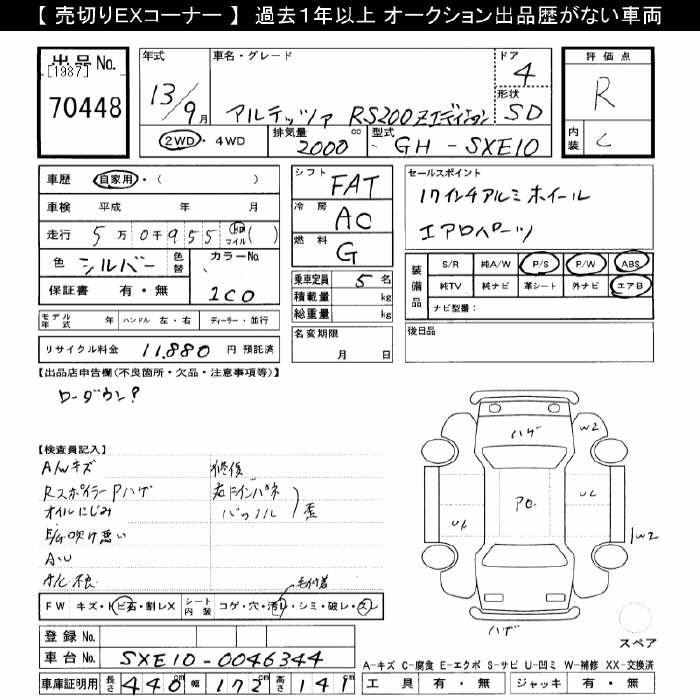 【 売切りEXコーナー 】 過去1年以上 オークション出品歴がない車両
出品No.
[1987]
70448
年式
13/9月
車名・グレード
アルテッツァ RS200 Zエディション
ドア
4
形状
SD
2WD・4WD
排気量
2000
cc
型式
GH-SXE10
評価点
R
内装
C
車歴
自家用・( )
車検
平成 年 月
走行
5万0千955
km
マイル
( )
色
シルバー
色替
カラーNo.
1C0
保証書
有・無
モデル年式
年
ハンドル
左・右
ディーラー・並行
リサイクル料金
11,880
円 預託済
シフト
FAT
冷房
AC
燃料
G
乗車定員
5名
積載量
kg
総重量
kg
名変期限
月 日
セールスポイント
17インチアルミホイール
エアロパーツ
装備品
S/R
純A/W
P/S
P/W
ABS
純TV
純ナビ
革シート
外ナビ
エアB
ナビ型番:
後日品
【出品店申告欄(不良箇所・欠品・注意事項等)】
ローダウン?
【検査員記入】
A/Wキズ
RスポイラーPハゲ
オイルにじみ
E/G吹け悪い
A-U
A/C不良
修復
右インパネ
バックパネル
歪
FW
キズ・トビ石・割レX
シート内装
コゲ・穴・汚レ・シミ・破レ・スレ
登録No.
車台No.
SXE10-0046344
車庫証明用
長さ
440
cm
幅
172
cm
高さ
141
cm
ハゲ
W2
U2
W2
ハゲ
スペア
A-キズ C-腐食 E-エクボ S-サビ U-凹ミ W-補修 XX-交換済
工具
有・無
ジャッキ
有・無